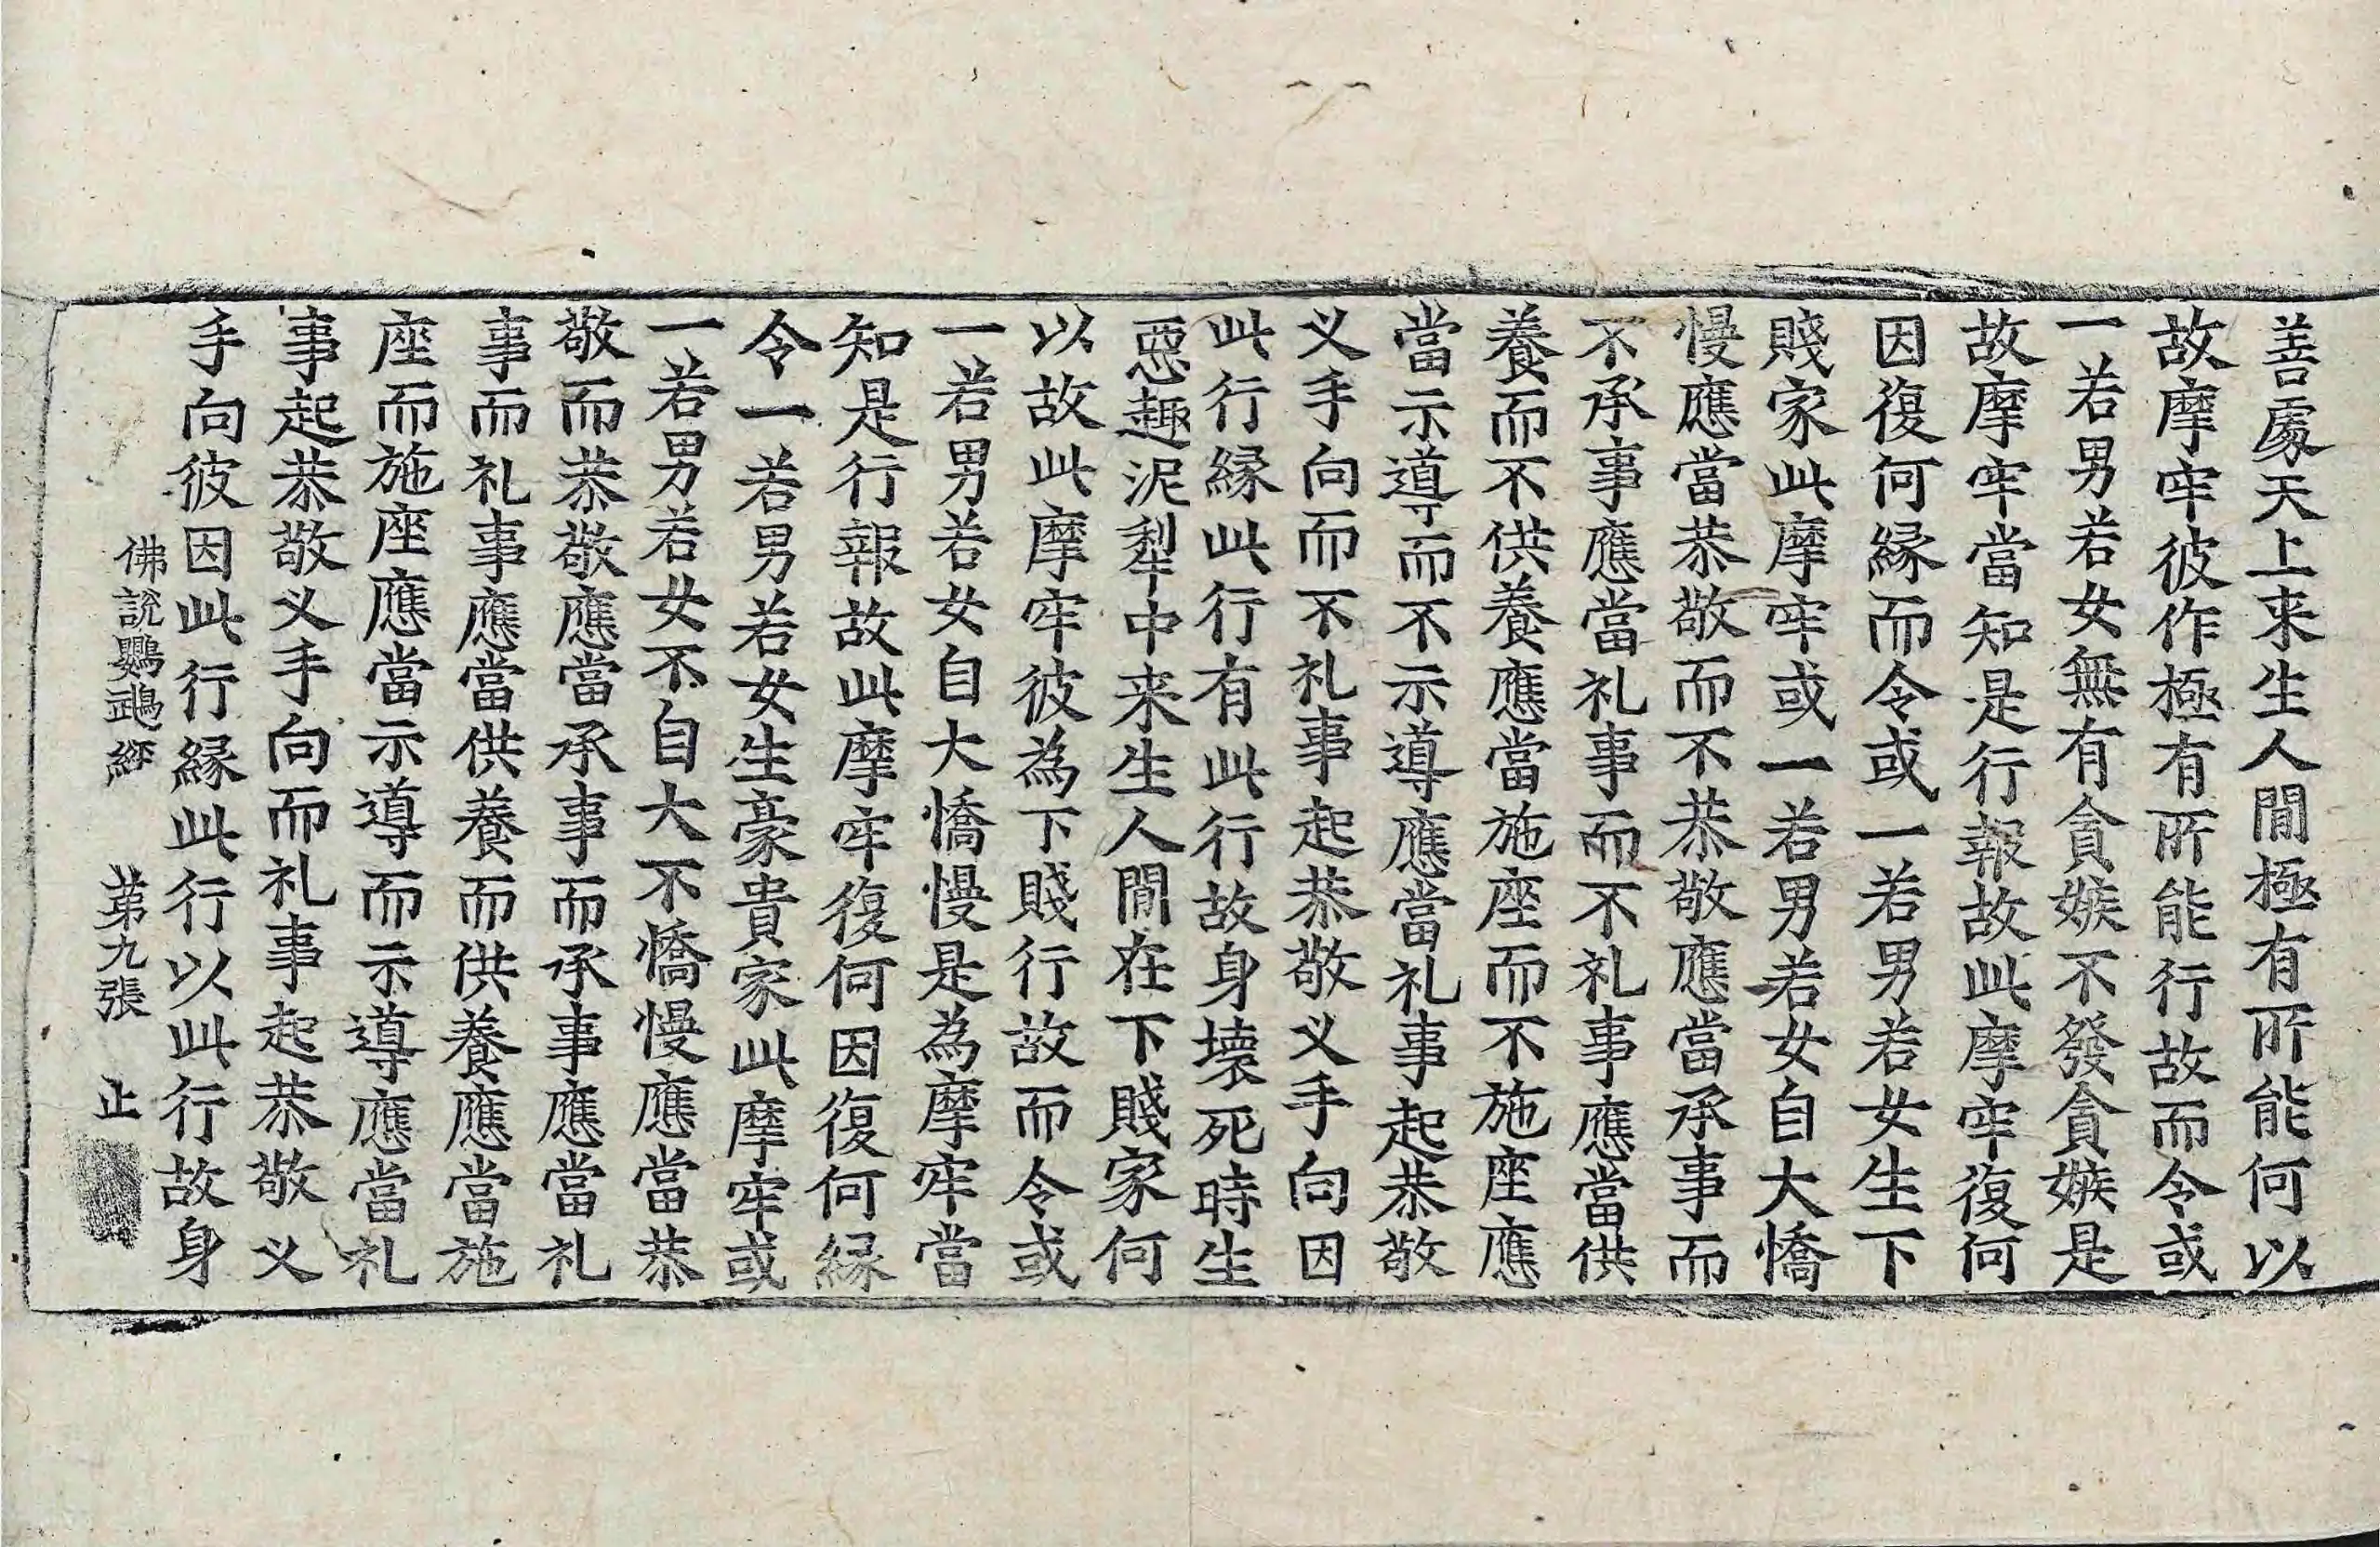 善處天上来生人間極有所能何以
故摩牢彼作極有所能行故而令或
一若男若女無有貪嫉不發貪嫉是
故摩牢當知是行報故此摩牢復何
因復何縁而令或一若男若女生下
賤家此摩牢或一若男若女自大憍
慢應當恭敬而不恭敬應當承事而
不承事應當礼事而不礼事應當供
養而不供養應當施座而不施座應
當示導而不示導應當礼事起恭敬
义手向而不礼事起恭敬义手向因
此行縁此行有此行故身壊死時生
惡趣泥犁中来生人間在下賤家何
以故此摩牢彼為下賤行故而令或
一若男若女自大憍慢是為摩牢當
知是行報故此摩牢復何因復何縁
令一若男若女生豪貴家此摩牢或
一若男若女不自大不憍慢應當恭
敬而恭敬應當承事而承事應當礼
事而礼事應當供養而供養應當施
座而施座應當示導而示導應當礼
事起恭敬义手向而礼事起恭敬义
手向彼因此行縁此行以此行故身
佛說鸚鵡經 第九張 止